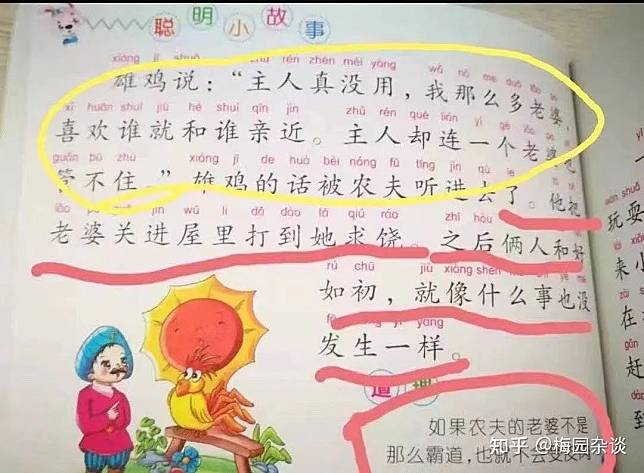 聪明小故事
xióng jī shuō zhǔ rén zhēn méi yòng wǒ nà me duō lǎo
雄鸡说：“主人真没用，我那么多老婆，
xǐ huān shuí jiù hé shuí qīn jìn zhǔ rén què lián yī gè lǎo
喜欢谁就和谁亲近。主人却连一个老婆
guǎn bú zhù xióng jī de huà bèi nóng fū tīng jìn qù le
管不住。”雄鸡的话被农夫听进去了。他把
lǎo pó guān jìn wū lǐ dǎ dào tā qiú ráo zhī hòu
老婆关进屋里打到她求饶。之后俩人和好
rú chū jiù xiàng shén
如初，就像什么事也没
yī yàng
发生一样。
道理
如果农夫的老婆不是
那么霸道，也就不会
玩耍
来小
在
赶
到
知乎 @梅园杂谈